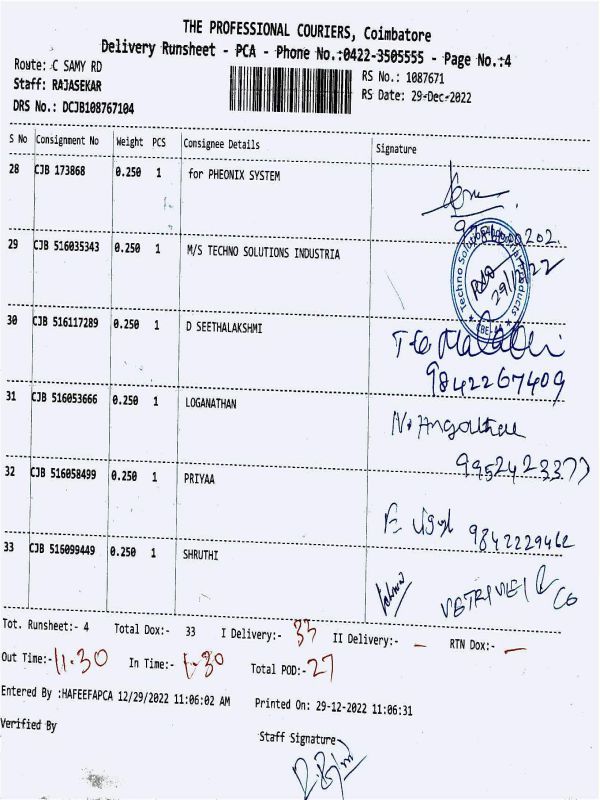 THE PROFESSIONAL COURIERS, Coimbatore
Delivery Runsheet - PCA - Phone No.:0422-3505555 - Page No.:4
Route: C SAMY RD
RS No.: 1087671
Staff: RAJASEKAR
RS Date: 29-Dec-2022
DRS No.: DCJB108767104
S No Consignment No Weight PCS Consignee Details Signature
28 CJB 173868 0.250 1 for PHEONIX SYSTEM
29 CJB 516035343 0.250 1 M/S TECHNO SOLUTIONS INDUSTRIA
Techno Solutions Industrial Products
29/12/22
30 CJB 516117289 0.250 1 D SEETHALAKSHMI
9842267409
31 CJB 516053666 0.250 1 LOGANATHAN
9952423377
32 CJB 516058499 0.250 1 PRIYAA
9842229462
33 CJB 516099449 0.250 1 SHRUTHI
VETRIVEL & Co
Tot. Runsheet:- 4 Total Dox:- 33 I Delivery:- 33 II Delivery:- - RTN Dox:- -
Out Time:- 11.30 In Time:- 1.30 Total POD:- 27
Entered By :HAFEEFAPCA 12/29/2022 11:06:02 AM Printed On: 29-12-2022 11:06:31
Verified By
Staff Signature